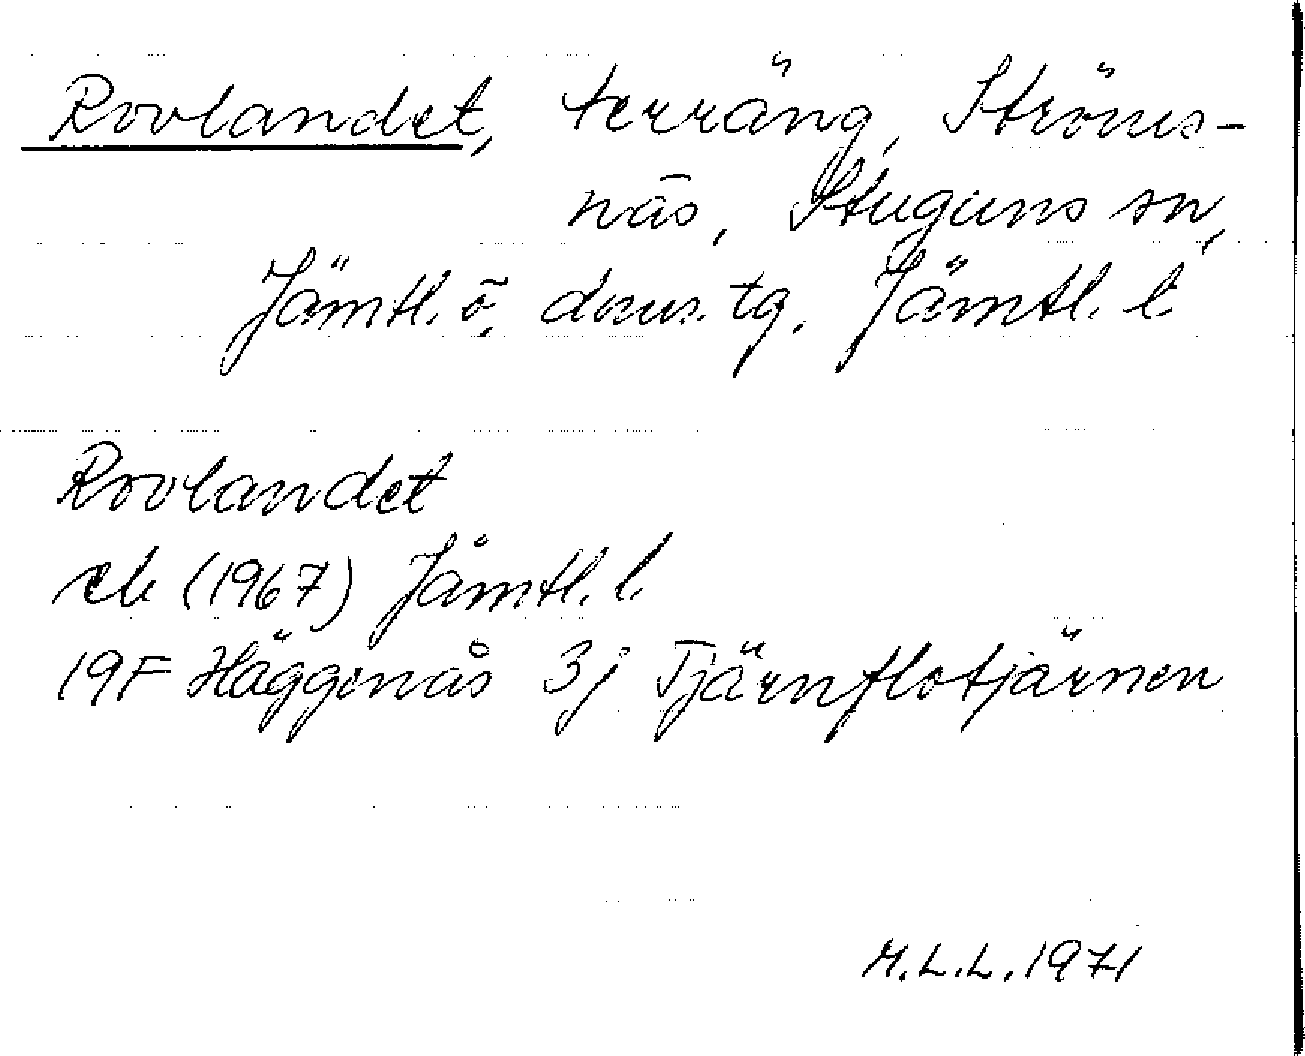 Rovlandet, terräng, Ströms-
näs, Stuguns sn,
Jämtl. ö. doms. tg. Jämtl. l.
Rovlandet
ek (1967) Jämtl. l.
19F Häggenås 3j Tjärnflotjärnen
M.L.L. 1971